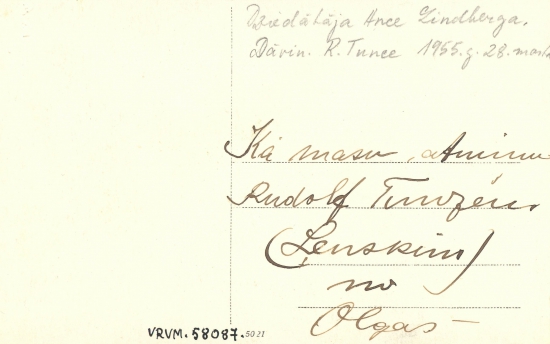 Dziedātāja Ance Lindberga.
Dāvin. R. Tunce 1955.g. 28. mart
Kā masu atminu
Rudolf Tunzén.
(Ļenskim)
no
Olgas
VRVM. 58087. 5021